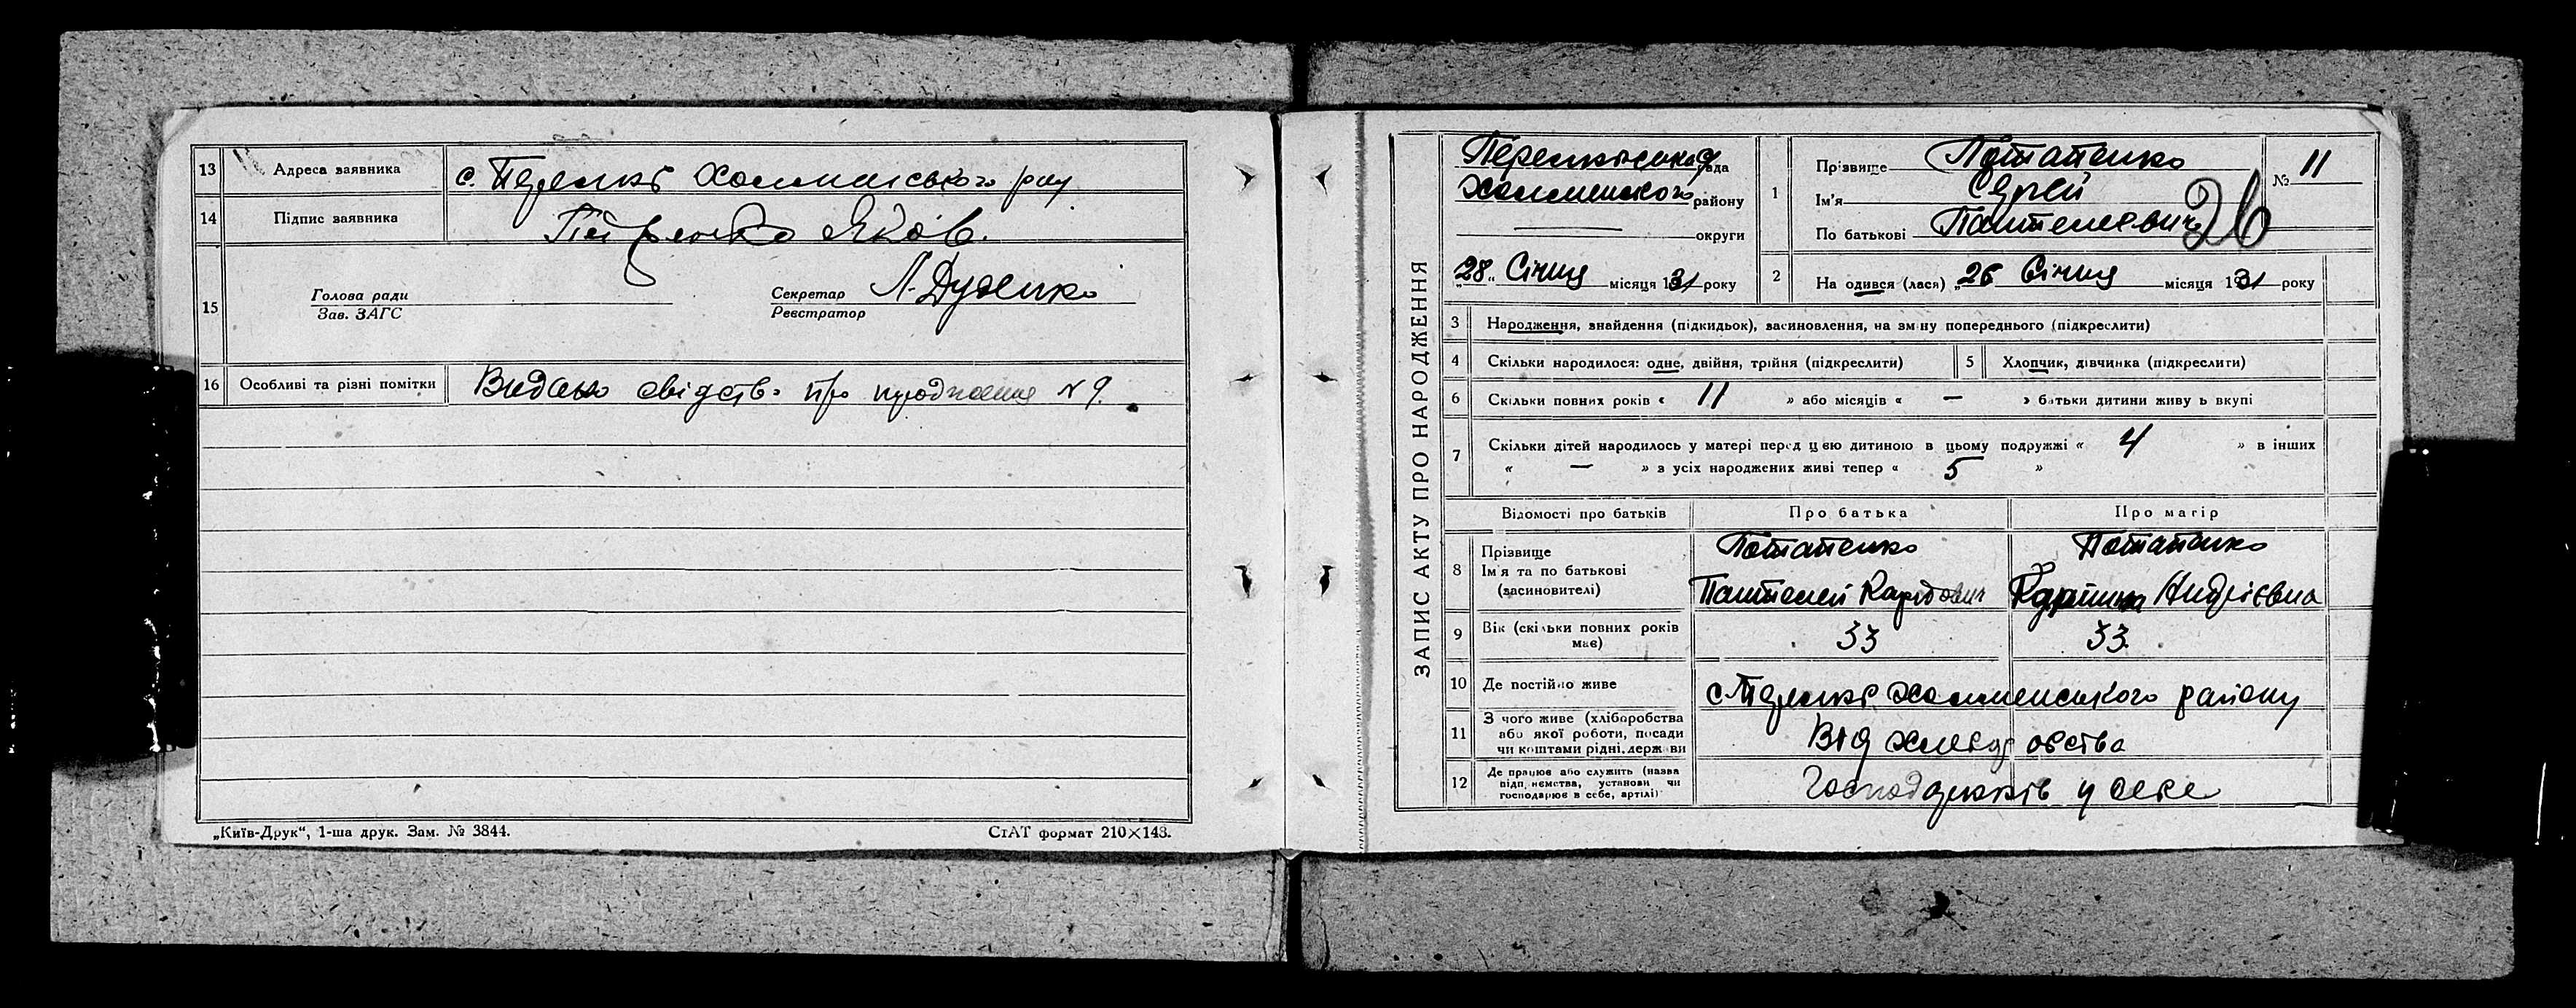 13 Адреса заявника с. Перелюб Холминського рай
14 Підпис заявника Петренко Яков.
15 Голова ради
Зав. ЗАГС
Секретар Л. Дуденко
Реєстратор
16 Особливі та різні помітки Видано свідств. про народження N 9.
„Київ-Друк“, 1-ша друк. Зам. № 3844. СтАТ формат 210×148.
ЗАПИС АКТУ ПРО НАРОДЖЕННЯ
рада
Холменського району
округи
„28„ Січня місяця 1931 року
1 Прізвище Потапенко
Ім'я Сергей
По батькові Пантелеевич
№ 11
26
2 На одився (лася) „26 Січня місяця 1931 року
3 Народження, знайдення (підкидьок), засиновлення, на зміну попереднього (підкреслити)
4 Скільки народилося: одне, двійня, трійня (підкреслити) 5 Хлопчик, дівчинка (підкреслити)
6 Скільки повних років « 11 » або місяців « — » батьки дитини живу ь вкупі
7 Скільки дітей народилось у матері перед цією дитиною в цьому подружжі « 4 » в інших
« — » з усіх народжених живі тепер « 5 »
Відомості про батьків Про батька Про матір
8 Прізвище Потапенко Потапенко
Ім'я та по батькові
(засиновителі) Пантелей Андрієвна
9 Вік (скільки повних років має) 33 33.
10 Де постійно живе с. Холменського району
11 З чого живе (хліборобства
або якої роботи, посади
чи коштами рідні, держави Від
12 Де працює або служить (назва
підприємства, установи чи
господарює в себе, артілі) у себе